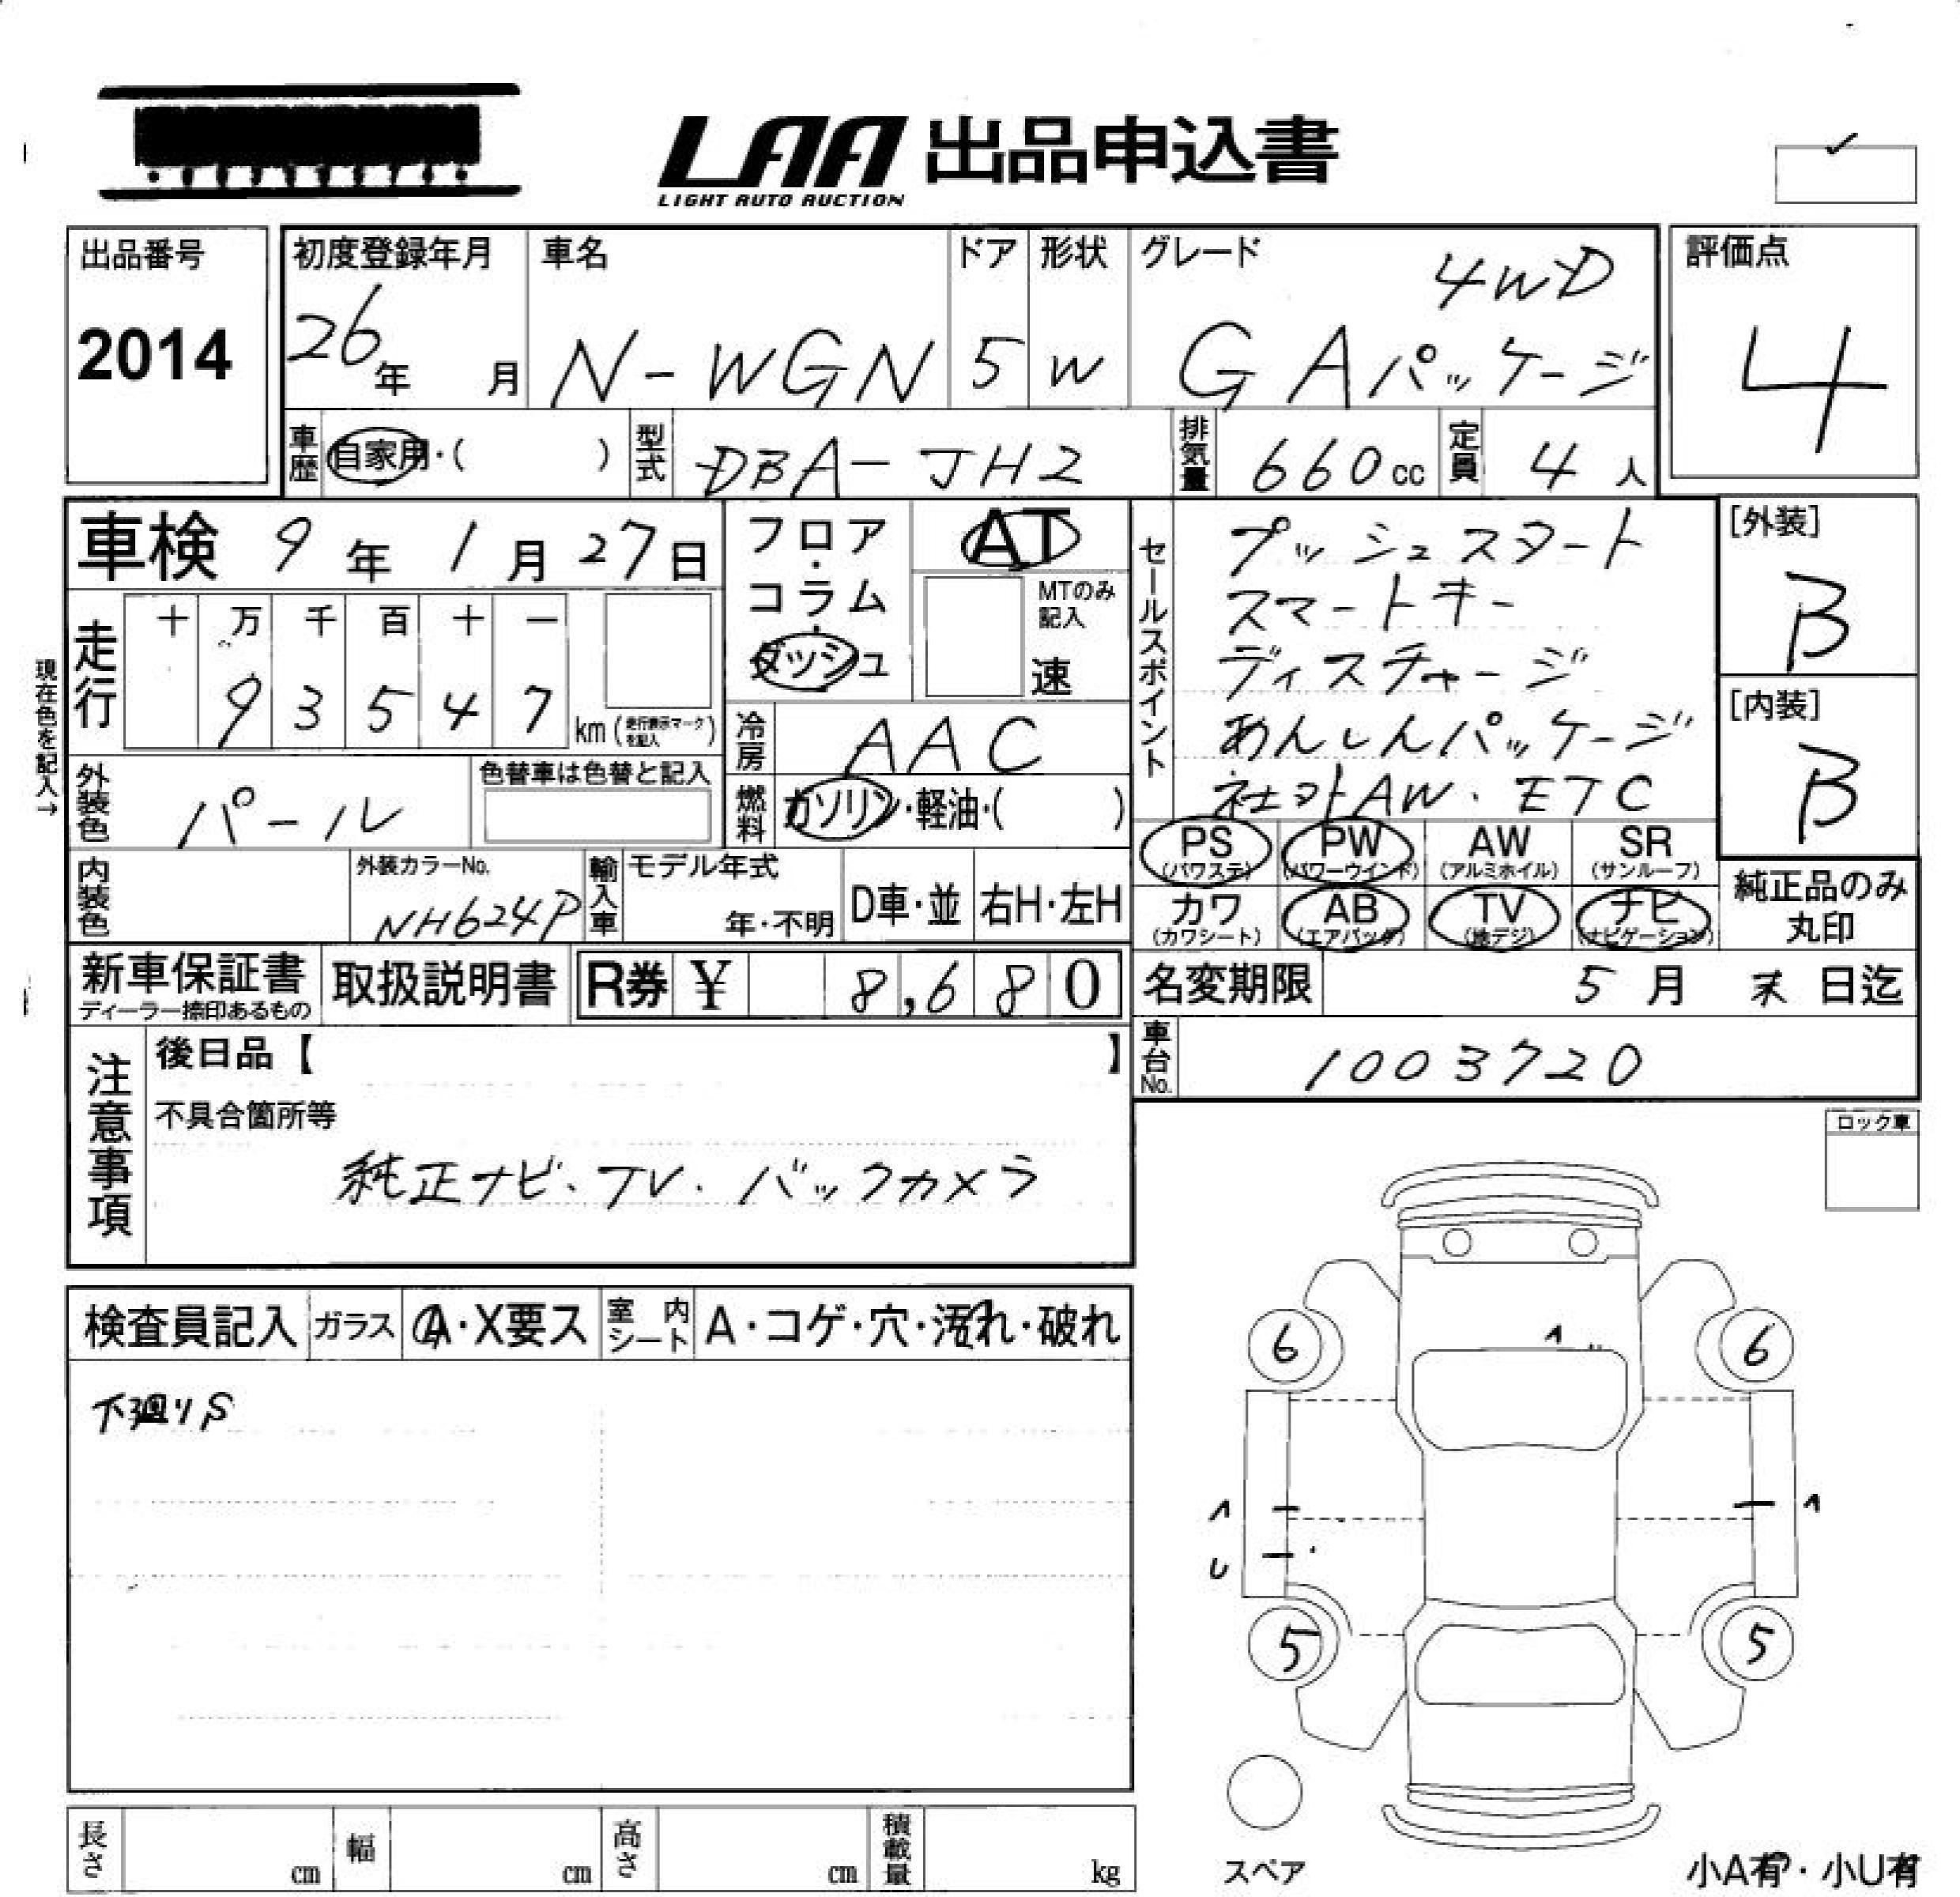 LAA 出品申込書
LIGHT AUTO AUCTION
出品番号
2014
初度登録年月
26年 月
車名
N-WGN
ドア
5
形状
W
グレード
4WD
G Aパッケージ
評価点
4
車歴 自家用・( )
型式 DBA-JH2
排気量 660cc
定員 4人
車検 9年 1月 27日
フロア・コラム・ダッシュ
AT
MTのみ記入
速
セールスポイント
プッシュスタート
スマートキー
ディスチャージ
あんしんパッケージ
社外AW・ETC
[外装]
B
[内装]
B
現在色を記入→
走行
十 万 千 百 十 一
9 3 5 4 7 km (走行表示マークを記入)
冷房 AAC
外装色 パール
色替車は色替と記入
燃料 ガソリン・軽油・( )
PS (パワステ)
PW (パワーウインド)
AW (アルミホイル)
SR (サンルーフ)
内装色
外装カラーNo.
NH624P
輸入車
モデル年式
年・不明
D車・並
右H・左H
カワ (カワシート)
AB (エアバッグ)
TV (地デジ)
ナビ (ナビゲーション)
純正品のみ
丸印
新車保証書
ディーラー捺印あるもの
取扱説明書
R券 ¥ 8,680
名変期限 5月 末日迄
車台No. 1003720
注意事項
後日品【 】
不具合箇所等
純正ナビ・TV・バックカメラ
ロック車
検査員記入
ガラス A・X要ス
室内シート A・コゲ・穴・汚れ・破れ
下廻りS
6 6
5 5
スペア
長さ cm
幅 cm
高さ cm
積載量 kg
小A有・小U有